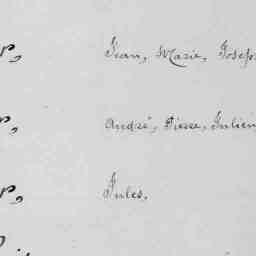 r, Jean, Marie, Joseph
r, André, Pierre, Julien,
r, Jules,